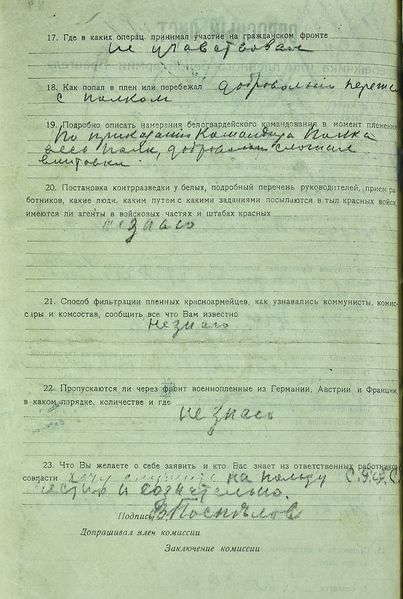 17. Где в каких операц. принимал участие на гражданском фронте
не участвовал
18. Как попал в плен или перебежал добровольно переше
с полком
19. Подробно описать намерения белогвардейского командования в момент пленения
По приказанию Командира Полка
весь полк, добровольно сложил
винтовки
20. Постановка контразведки у белых, подробный перечень руководителей, прием ра
ботников, какие люди, каким путем с какими заданиями посылаются в тыл красных войск
имеются ли агенты в войсковых частях и штабах красных
не знаю
21. Способ фильтрации пленных красноармейцев, как узнавались коммунисты, комис-
сары и комсостав, сообщить все что Вам известно
Не знаю
22. Пропускаются ли через фронт военнопленные из Германии, Австрии и Франции,
в каком порядке, количестве и где
не знаю
23. Что Вы желаете о себе заявить и кто Вас знает из ответственных работников
совласти хочу служить на пользу
честно и сознательно.
Подпись В Поспелов
Допрашивал член комиссии
Заключение комиссии